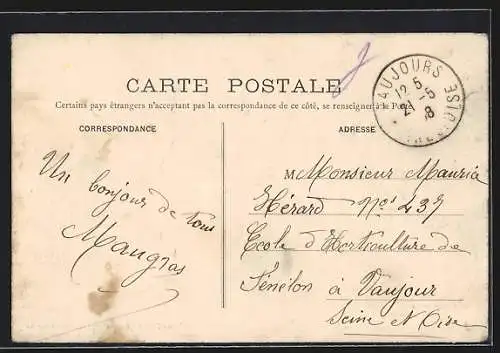 CARTE POSTALE
Certains pays étrangers n'acceptant pas la correspondance de ce côté, se renseigner à la Poste
CORRESPONDANCE
ADRESSE
VAUJOURS
12 5
24 -5
8
Un bonjour de tous
Maugras
M Monsieur Maurice
Hérard No 237
Ecole d'Horticulture de
Fénélon à Vaujour
Seine et Oise